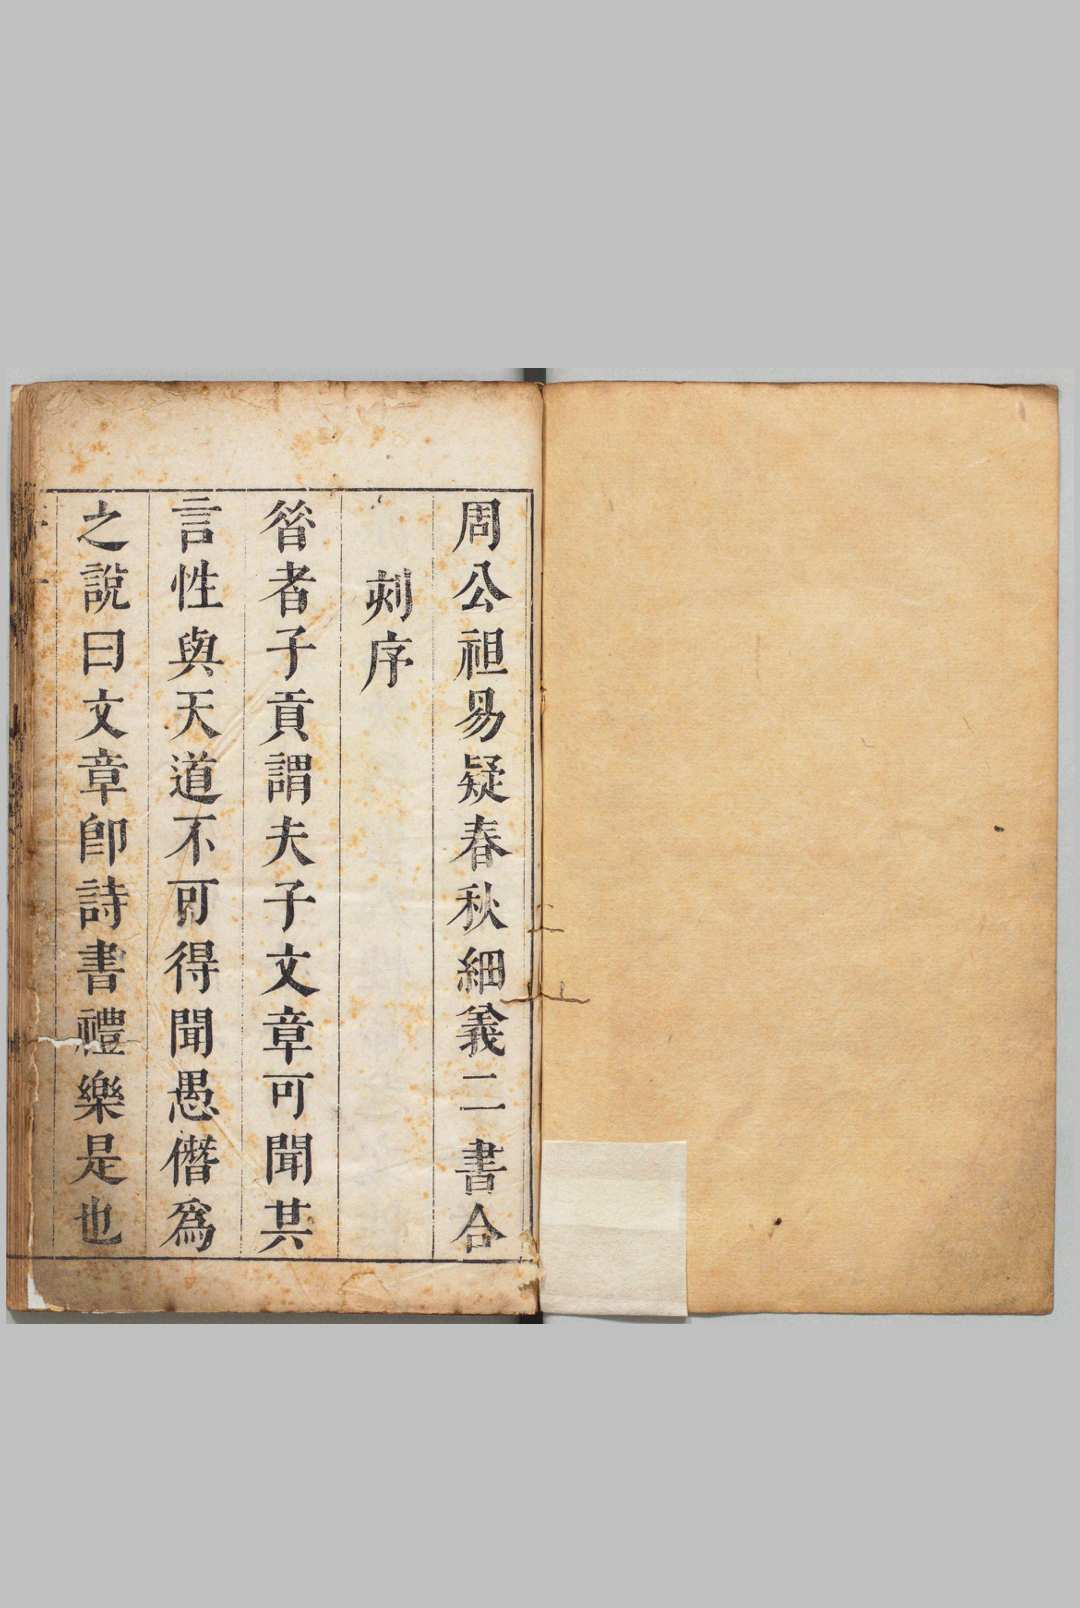 周公祖易疑春秋細義二書合
刻序
㫺者子貢謂夫子文章可聞其
言性與天道不可得聞愚僭爲
之說曰文章卽詩書禮樂是也